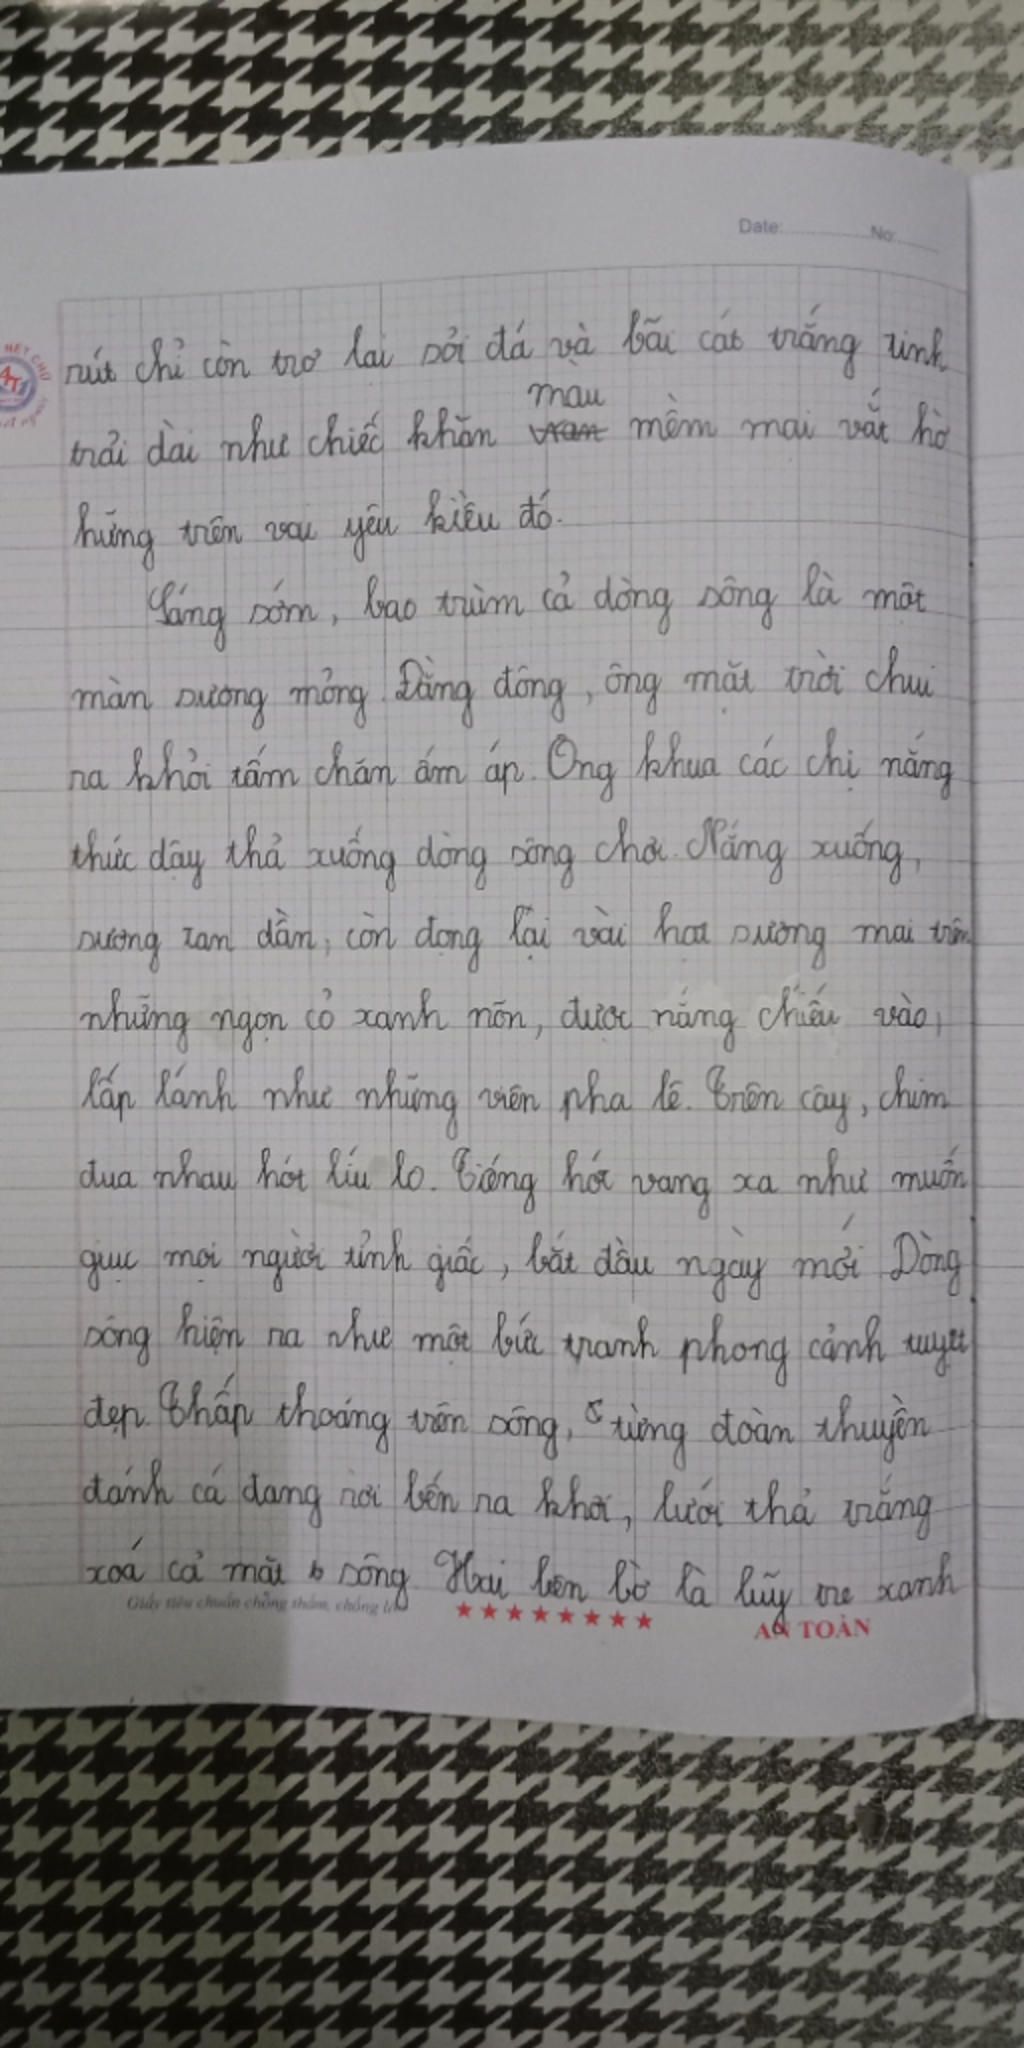 Date: No:
HẾT CHỮ
rút chỉ còn trơ lại sỏi đá và bãi cát trắng tinh
màu
trải dài như chiếc khăn mềm mai vắt hờ
hững trên vai yêu kiều đó.
Sáng sớm, bao trùm cả dòng sông là một
màn sương mỏng. Đằng đông, ông mặt trời chui
ra khỏi tấm chăn ấm áp. Ông khua các chị nắng
thức dậy thả xuống dòng sông chơi. Nắng xuống,
sương tan dần, còn đọng lại vài hạt sương mai trên
những ngọn cỏ xanh nõn, được nắng chiếu vào,
lấp lánh như những viên pha lê. Trên cây, chim
đua nhau hót líu lo. Tiếng hót vang xa như muốn
giục mọi người tỉnh giấc, bắt đầu ngày mới. Dòng
sông hiện ra như một bức tranh phong cảnh tuyệt
đẹp. Thấp thoáng trên sông, từng đoàn thuyền
đánh cá đang rời bến ra khơi, lưới thả trắng
xoá cả mặt sông. Hai bên bờ là luỹ tre xanh
Giấy tiêu chuẩn chống thấm, chống
AN TOÀN